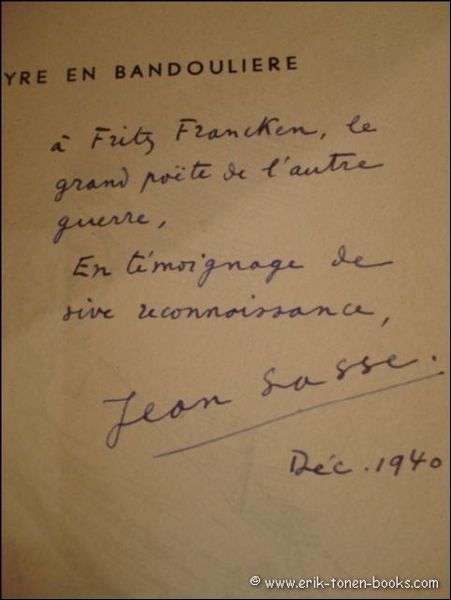 YRE EN BANDOULIERE
à Fritz Francken, le
grand poëte de l'autre
guerre,
En témoignage de
vive reconnaissance,
Jean Sasse.
Déc. 1940
©www.erik-tonen-books.com